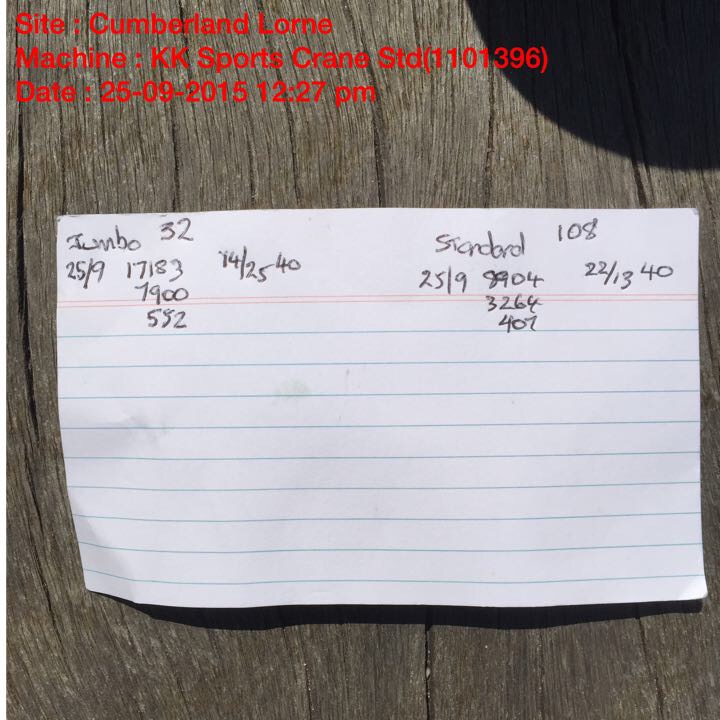 Site : Cumberland Lorne
Machine : KK Sports Crane Std(1101396)
Date : 25-09-2015 12:27 pm
Jumbo 32
25/9 17183 14/25 40
7900
552
Standard 108
25/9 8904 22/13 40
3264
407